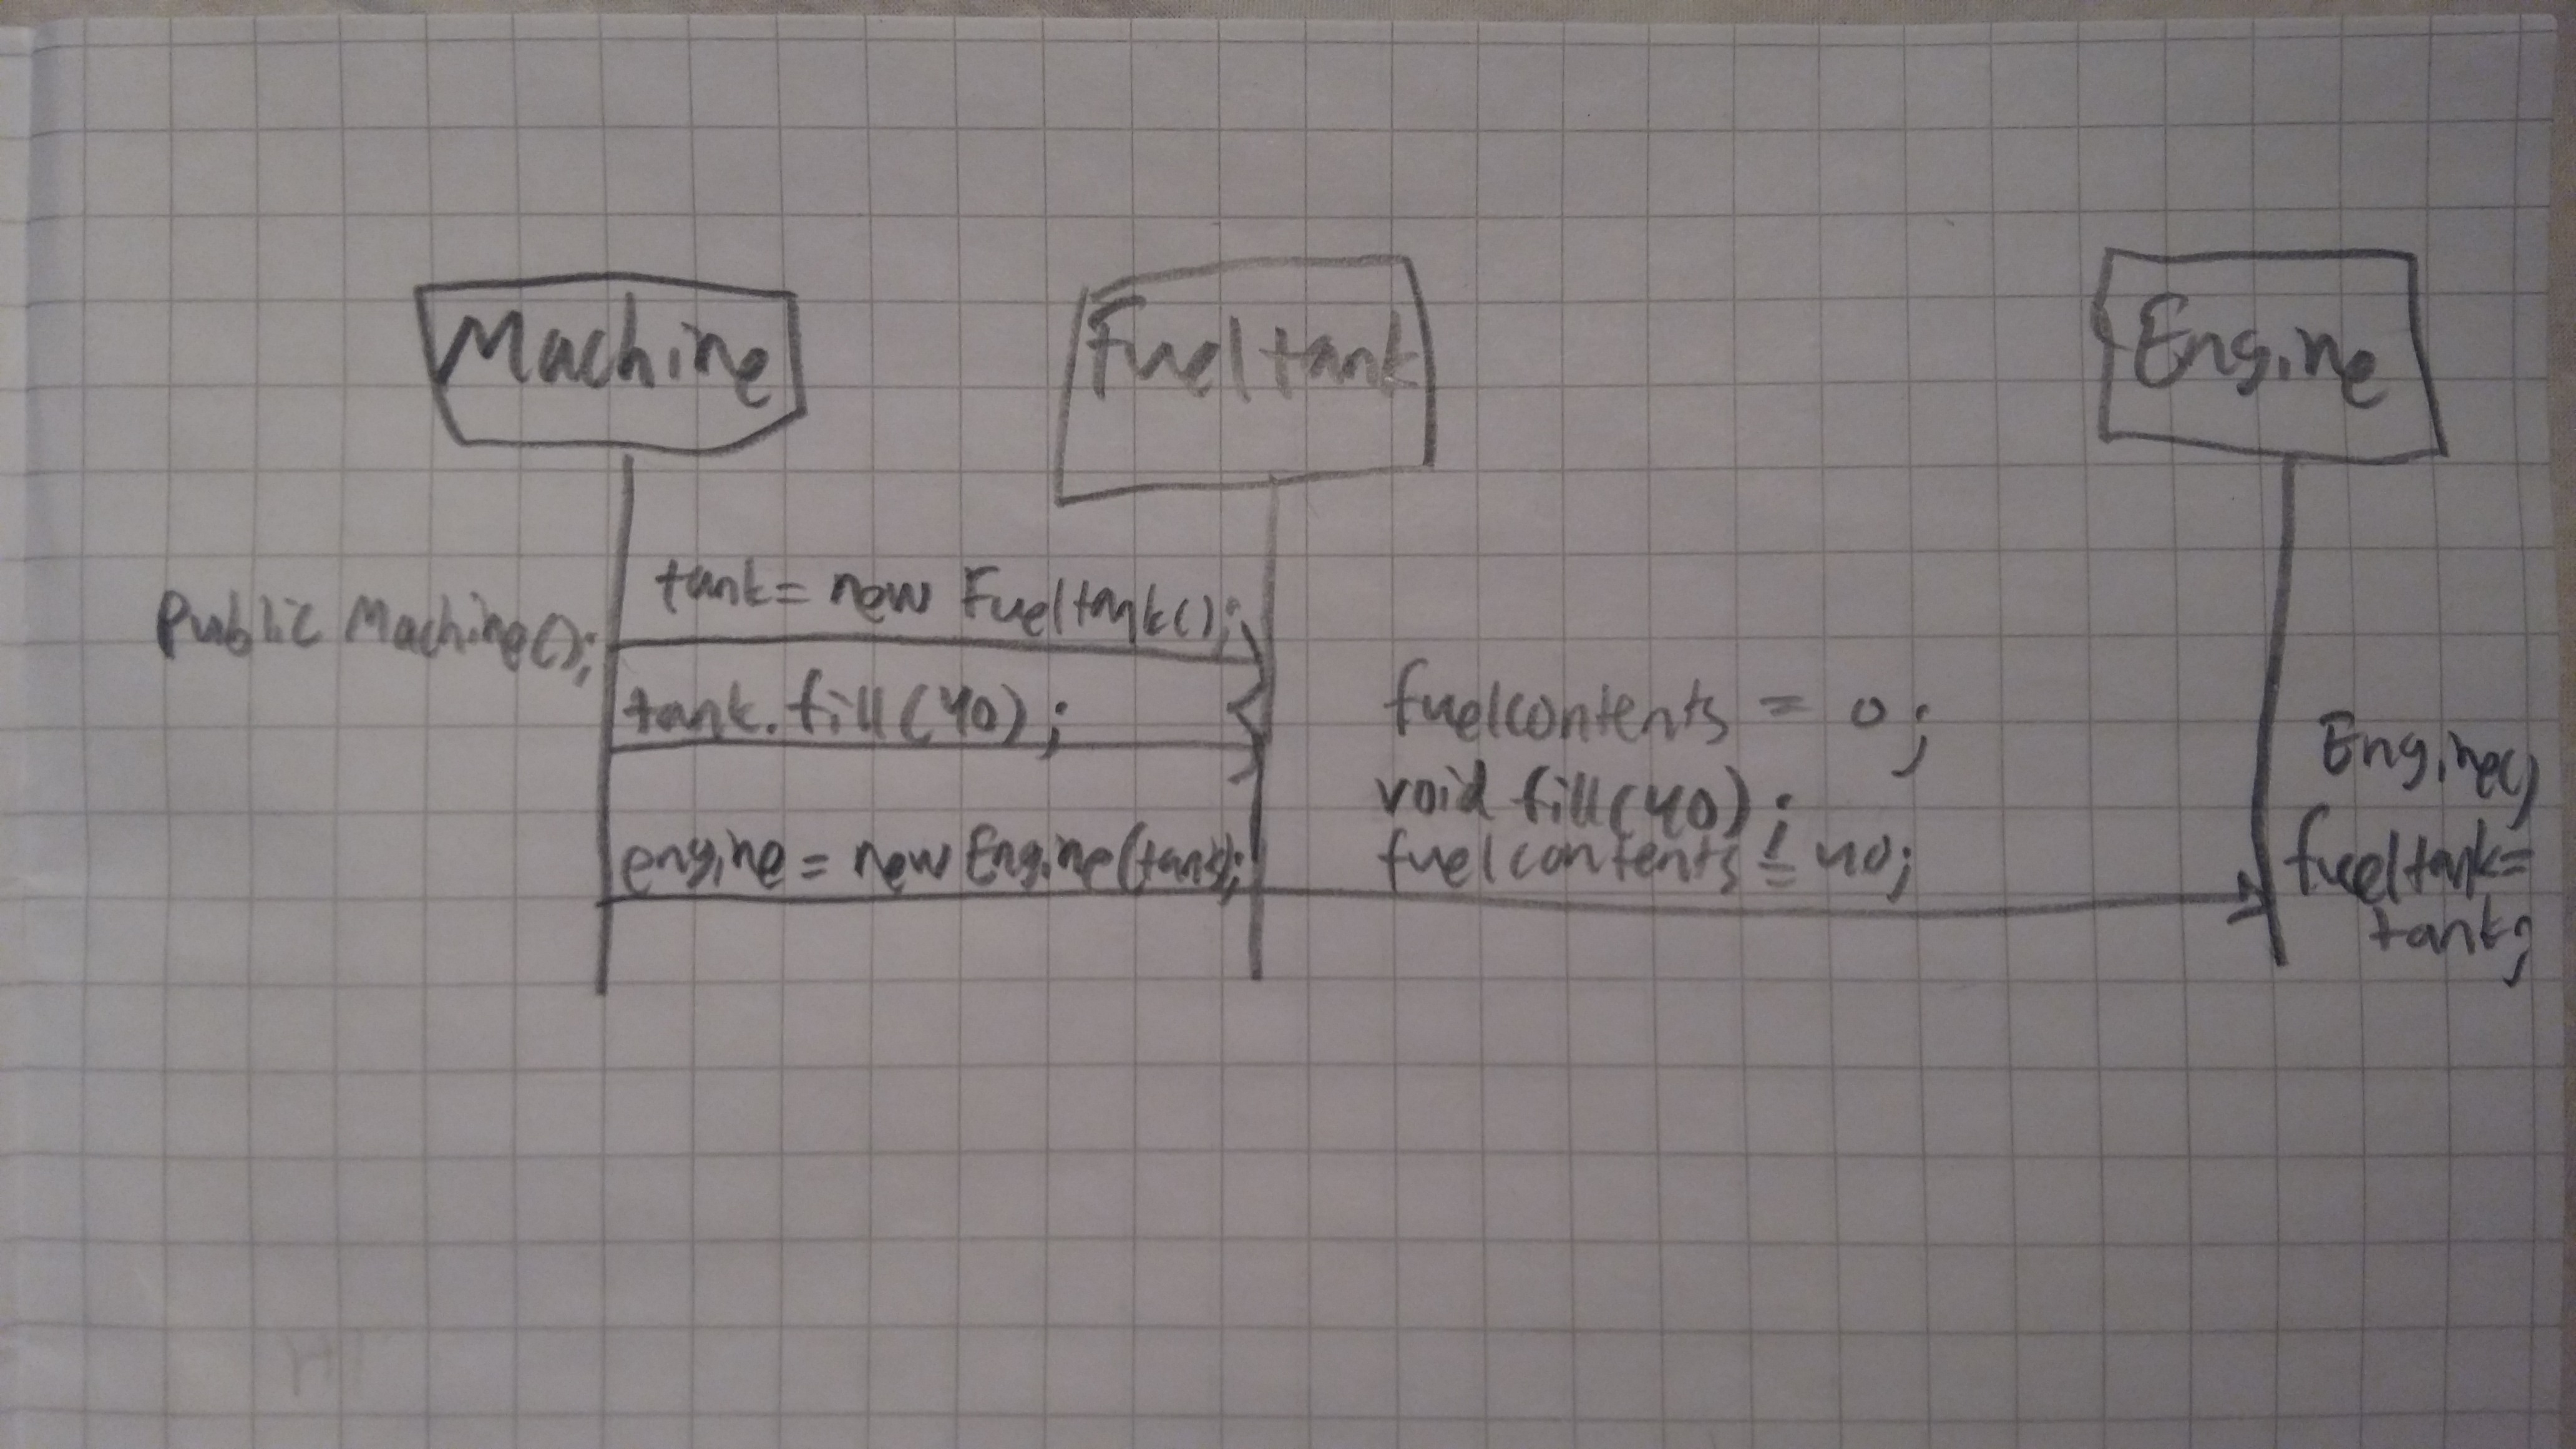 Machine
Fueltank
Engine
Public Machine();
tank = new Fueltank();
tank.fill(40);
engine = new Engine(tank);
fuelcontents = 0;
void fill(40);
fuelcontents = 40;
Engine()
fueltank=
tank;